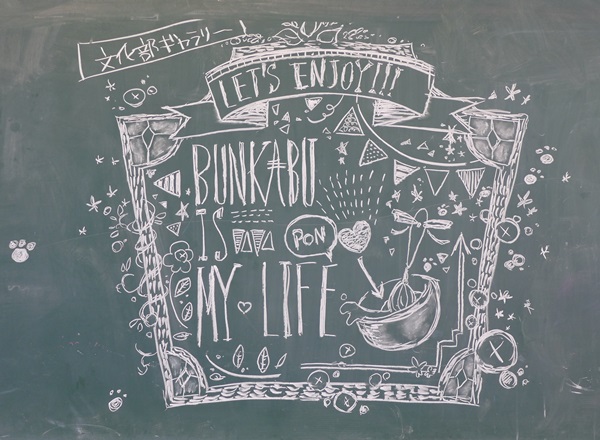 文化部ギャラリー!
LET'S ENJOY!!!
BUNKABU
IS
PON
MY LIFE